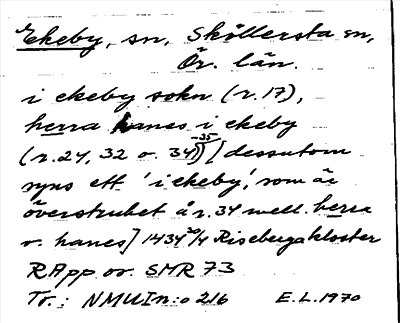 Ekeby, sn, Sköllersta sn,
Ör. län.
i ekeby sokn (r. 17),
herra hanes i ekeby
(r. 24, 32 o. 34-35) [dessutom
syns ett 'i ekeby', som är
överstruket å r. 34 mell. herra
o. hanes] 1434 /4 Riseberga kloster
RApp or. SMR 73
Tr.: NMU I n:o 216 E.L. 1970